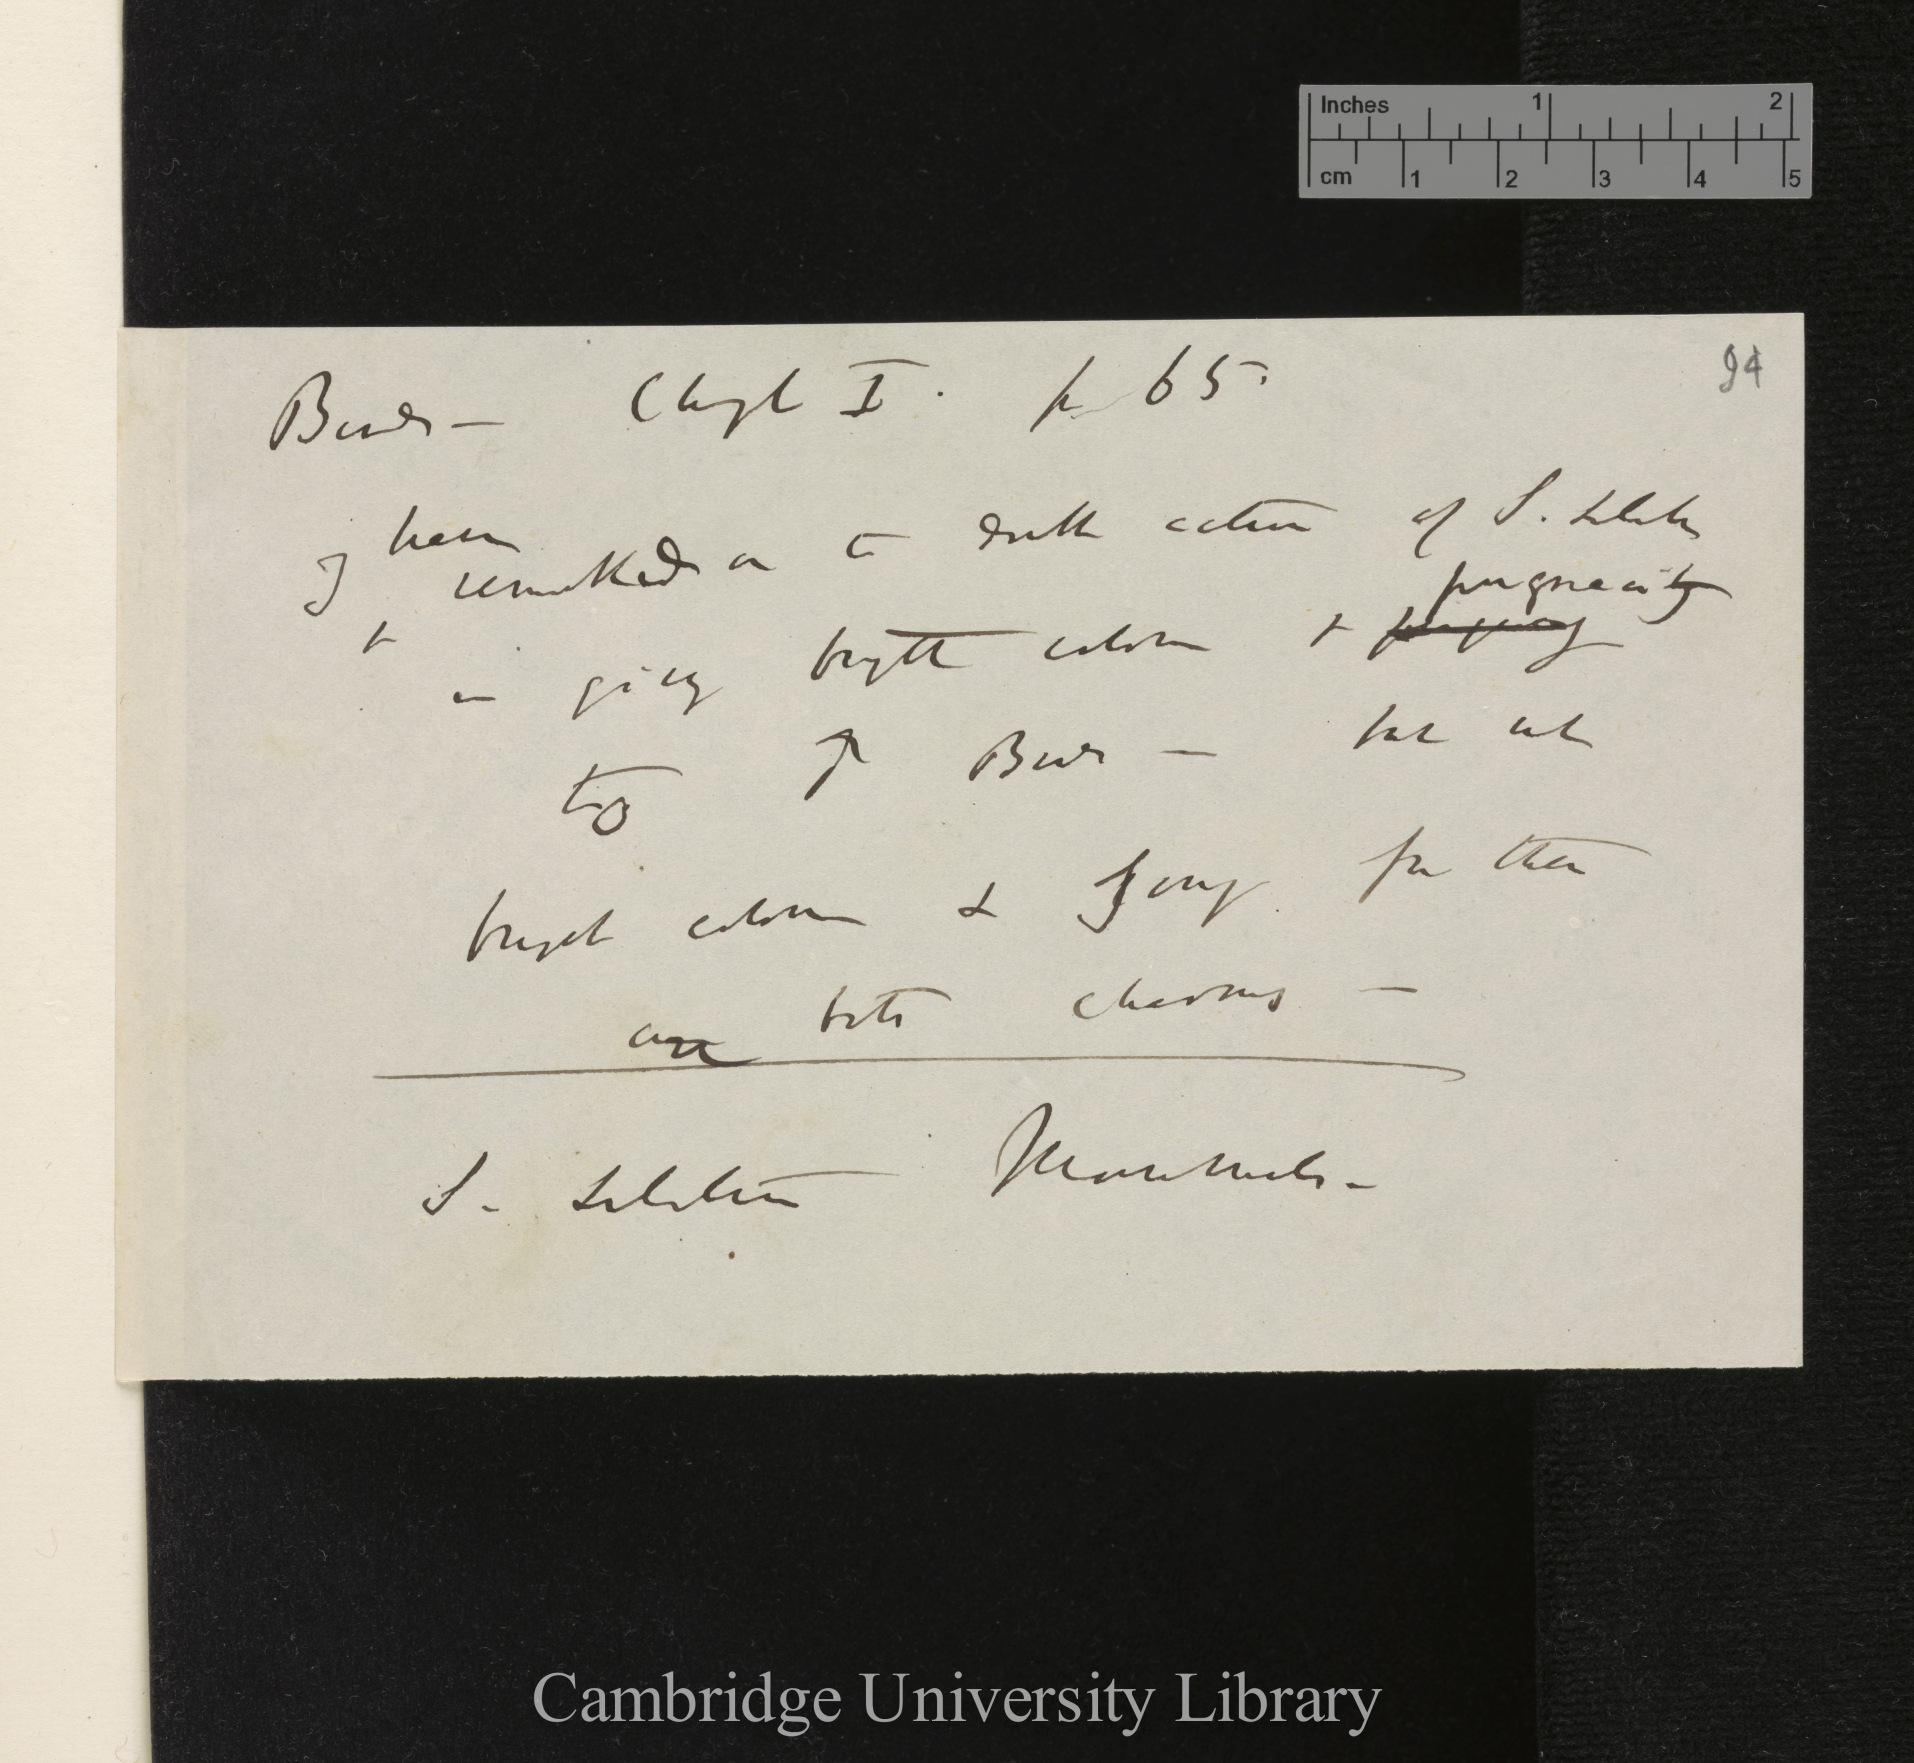 Inches 1 2
cm 1 2 3 4 5
94
Birds — Chapt I. p 65.
I have remarked on the double action of S. Selecti
+ in giving bright colours & pugnacity
to ♂ Birds — but not
bright colours & song for these
are both charms —
S. Selection Mammals —
Cambridge University Library